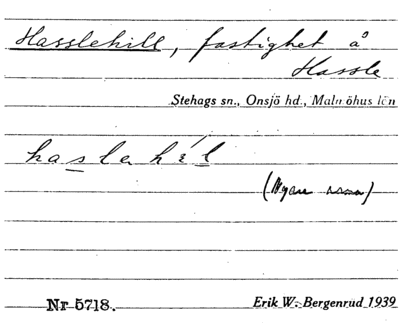 Hasslehill, fastighet å
Hassle
Stehags sn., Onsjö hd., Malmöhus län
haslahil
(Nyare namn)
Nr 5718.
Erik W. Bergenrud 1939